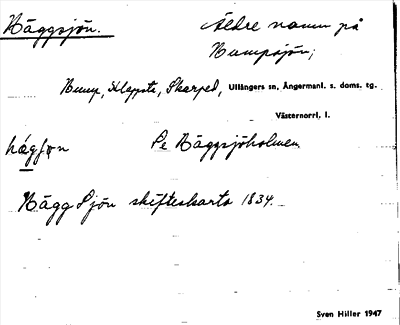 Häggsjön. Äldre namn på
Hampsjön;
Hump, Kläppsta, Skarped, Ullångers sn, Ångermanl. s. doms. tg.
Västernorrl. l.
Se Häggsjöholmen
Hägg Sjön skifteskarta 1834.
Sven Hiller 1947